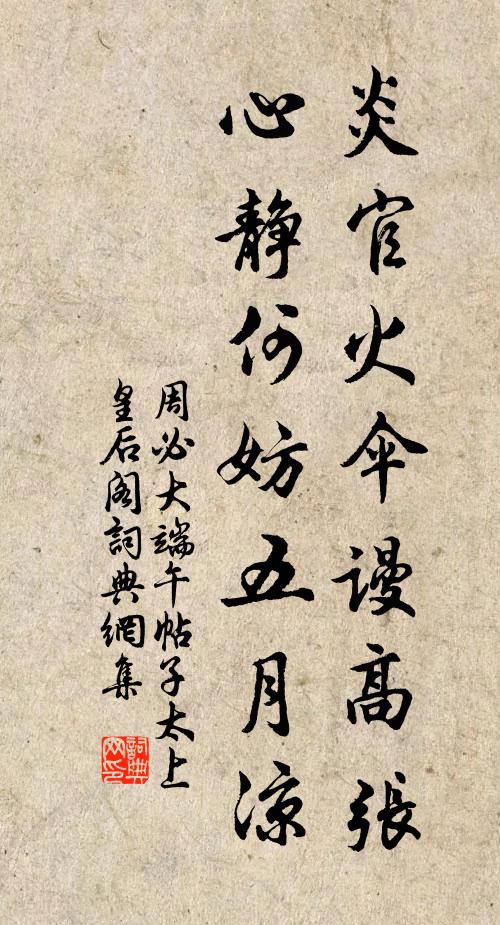 炎官火伞謾高張
心静何妨五月涼
周必大端午帖子太上
皇后阁詞典網集
詞典网印